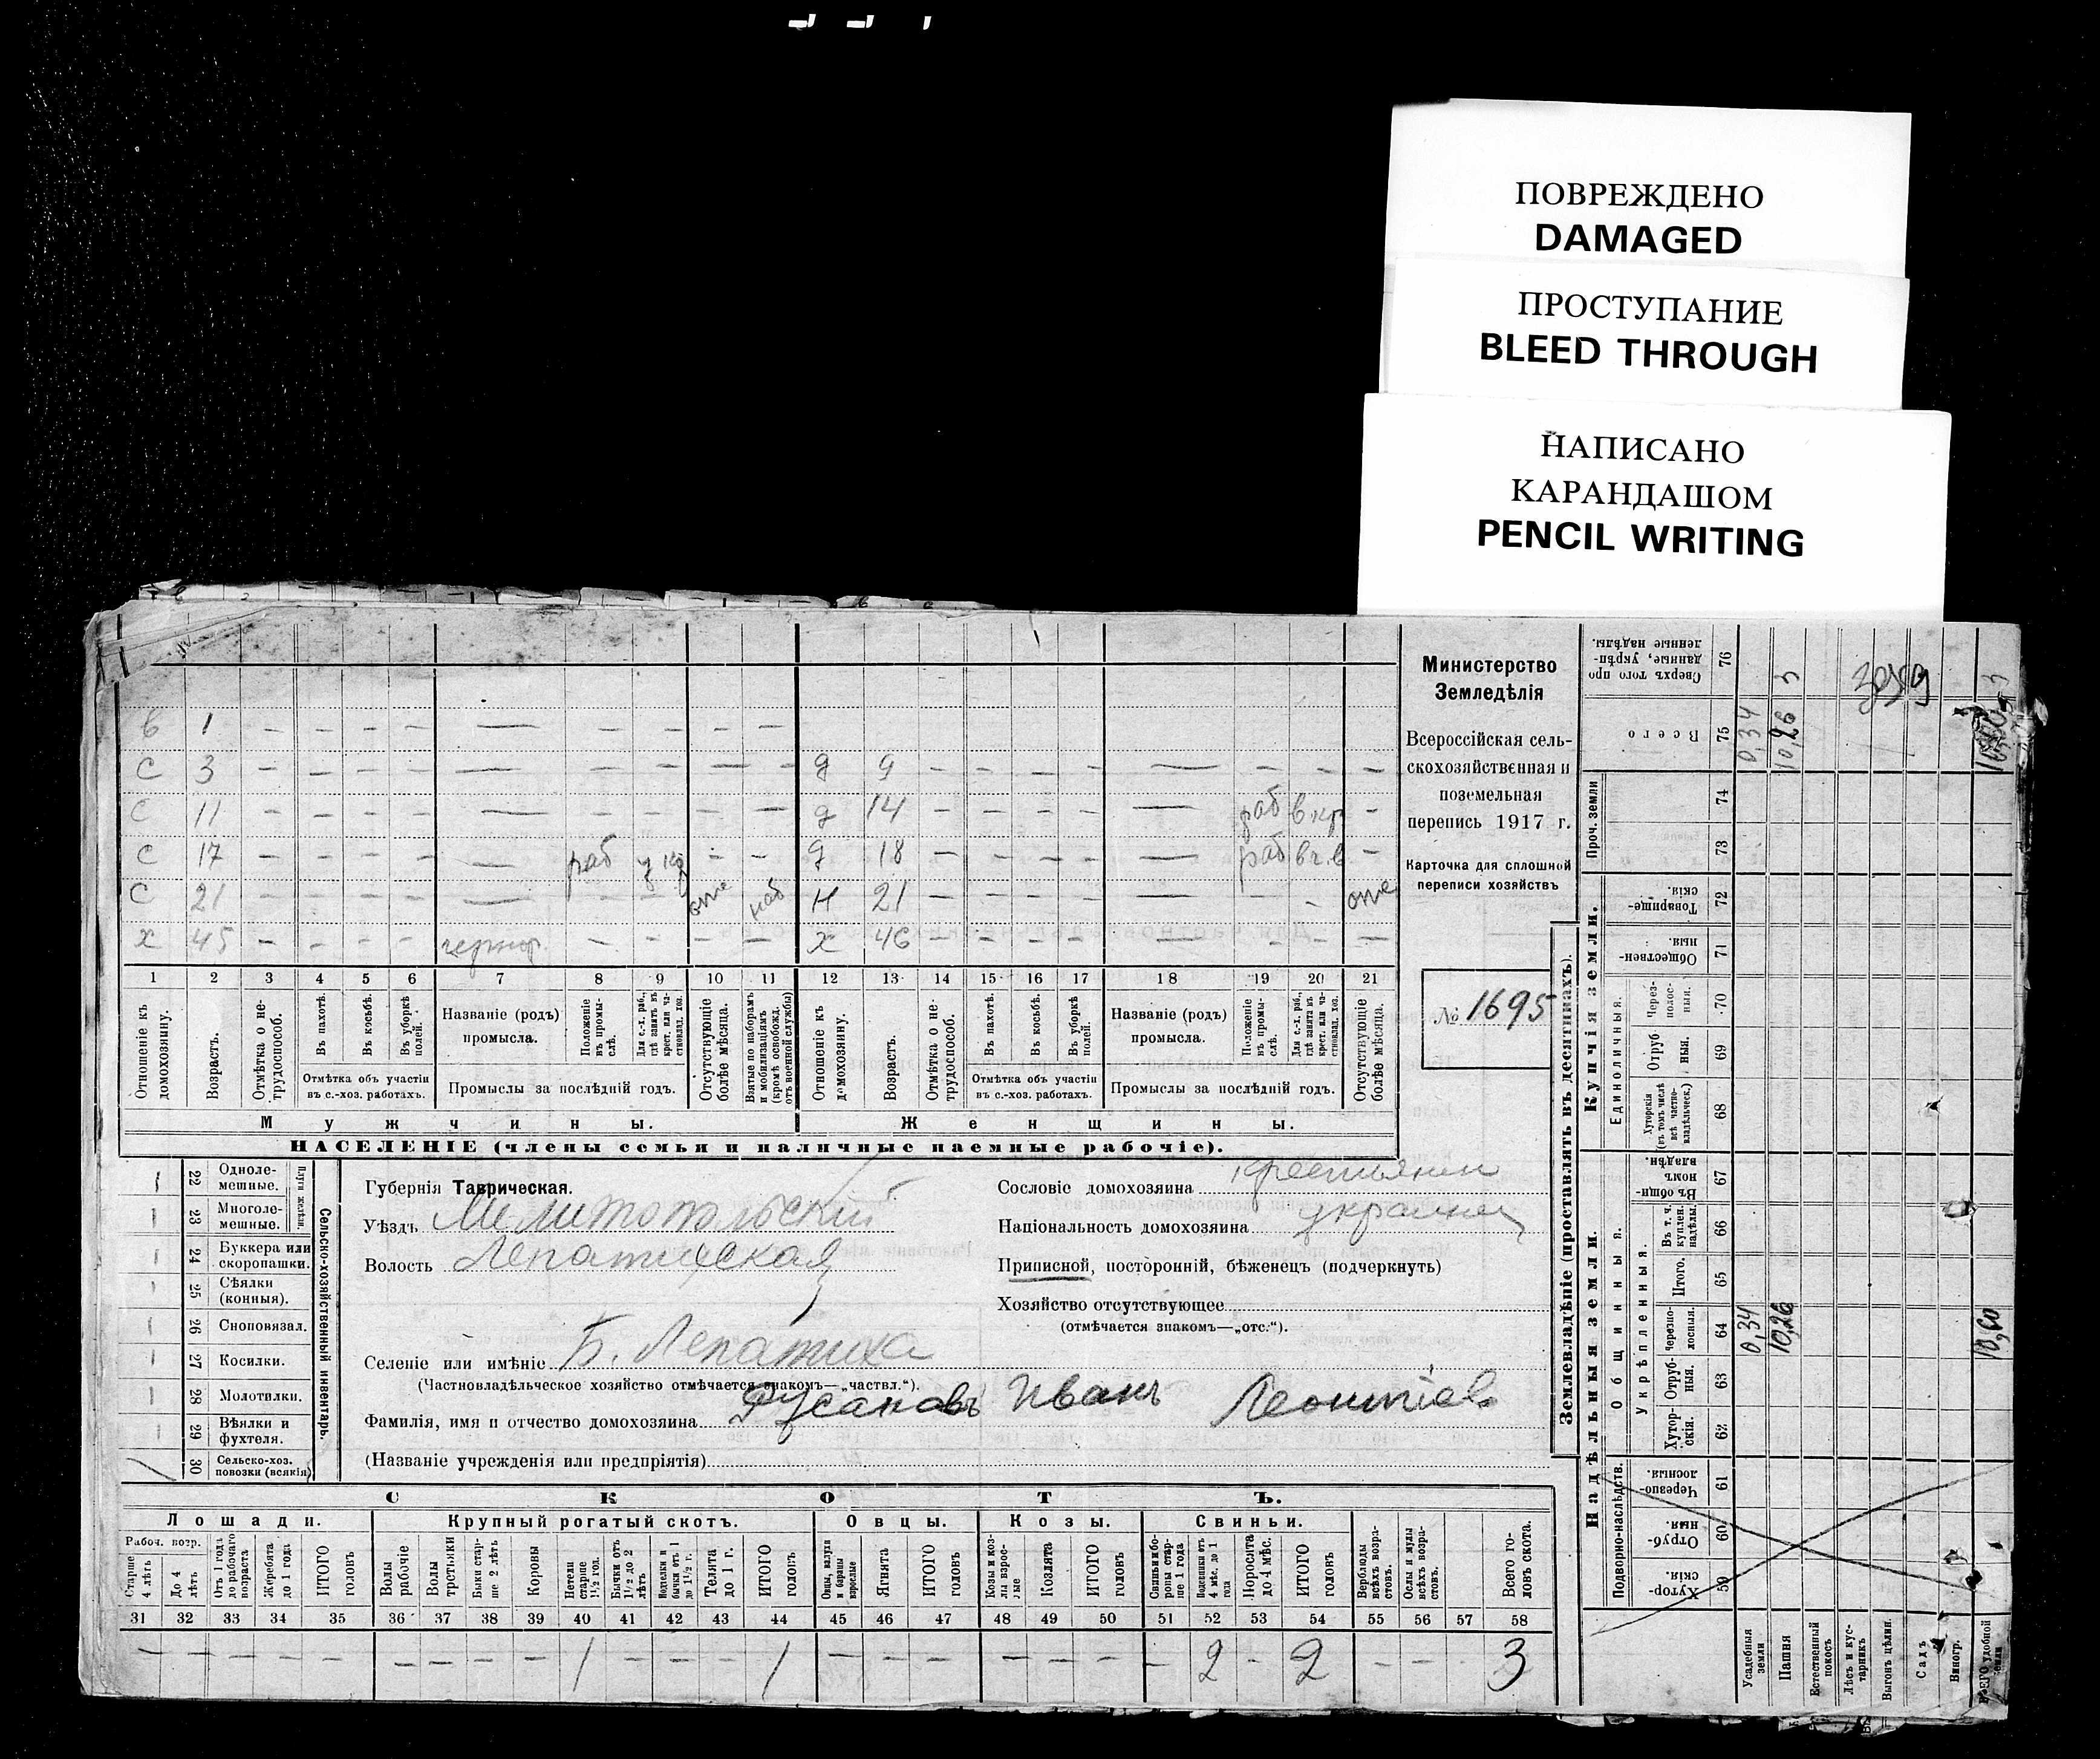 ПОВРЕЖДЕНО
DAMAGED
ПРОСТУПАНИЕ
BLEED THROUGH
НАПИСАНО
КАРАНДАШОМ
PENCIL WRITING
Министерство
Земледѣлія
Всероссійская сель-
скохозяйственная и
поземельная
перепись 1917 г.
Карточка для сплошной
переписи хозяйствъ
№ 1695
в 1 – – – – — – – – –
с 3 – – – – — – – – – д 9 – – – – — – – –
с 11 – – – – — – – – – д 14 – – – – — раб в кр –
с 17 – – – – — раб – – д 18 – – – – — раб –
с 21 – – – – — – – отс наб н 21 – – – – — – отс
х 45 – – – – чернор. – – – – х 46 – – – – — – – –
1 2 3 4 5 6 7 8 9 10 11 12 13 14 15 16 17 18 19 20 21
Отношеніе къ домохозяину.
Возрастъ.
Отмѣтка о не-трудоспособ.
Въ пахотѣ.
Въ косьбѣ.
Въ уборкѣ полей.
Отмѣтка объ участіи
въ с.-хоз. работахъ.
Названіе (родъ)
промысла.
Положеніе въ промы-слѣ.
Для с.-х. раб., гдѣ занятъ въ крест. или ча-стновлад. хоз.
Промыслы за послѣдній годъ.
Отсутствующіе болѣе мѣсяца.
Взятые по наборамъ и мобилизаціямъ (кромѣ освобожд. отъ военной службы)
Отношеніе къ домохозяину.
Возрастъ.
Отмѣтка о не-трудоспособ.
Въ пахотѣ.
Въ косьбѣ.
Въ уборкѣ полей.
Отмѣтка объ участіи
въ с.-хоз. работахъ.
Названіе (родъ)
промысла.
Положеніе въ промы-слѣ.
Для с.-х. раб., гдѣ занята въ крест. или ча-стновлад. хоз.
Промыслы за послѣдній годъ.
Отсутствующіе болѣе мѣсяца.
Мужчины. Женщины.
НАСЕЛЕНІЕ (члены семьи и наличные наемные рабочіе).
Сельско-хозяйственный инвентарь.
Плуги желѣзн.
22 Одноле-мешные.
23 Многоле-мешные.
24 Буккера или скоропашки.
25 Сѣялки (конныя).
26 Сноповязал.
27 Косилки.
28 Молотилки.
29 Вѣялки и фухтеля.
30 Сельско-хоз. повозки (всякія)
Губернія Таврическая.
Уѣздъ Мелитопольскій
Волость Лепатихская
Селеніе или имѣніе Б. Лепатиха
(Частновладѣльческое хозяйство отмѣчается знакомъ—„частвл.“).
Фамилія, имя и отчество домохозяина Русановъ Иванъ Леонтіев.
(Названіе учрежденія или предпріятія)
Сословіе домохозяина крестьянин
Національность домохозяина украинец
Приписной, посторонній, бѣженецъ (подчеркнуть)
Хозяйство отсутствующее
(отмѣчается знакомъ—„отс.“).
СКОТЪ.
Лошади. Крупный рогатый скотъ. Овцы. Козы. Свиньи.
Рабоч. возр.
Старше 4 лѣтъ
До 4 лѣтъ
Отъ 1 года до рабочаго возраста
Жеребята до 1 года
ИТОГО головъ
Волы рабочіе
Волы третьяки
Быки стар-ше 2 лѣтъ
Коровы
Нетели старше 1½ год.
Бычки отъ 1½ до 2 лѣтъ
Подтелки и бычки отъ 1 до 1½ г.
Телята до 1 г.
ИТОГО головъ
Овцы, валухи и бараны взрослые
Ягнята
ИТОГО головъ
Козы и коз-лы взрос-лые
Козлята
ИТОГО головъ
Свиньи бо-ровы стар-ше 1 года
Подсвинки отъ 4 мѣс. до 1 года
Поросята до 4 мѣс.
ИТОГО головъ
Верблюды всѣхъ возра-стовъ.
Ослы и мулы всѣхъ возра-стовъ.
Всего го-ловъ скота.
31 32 33 34 35 36 37 38 39 40 41 42 43 44 45 46 47 48 49 50 51 52 53 54 55 56 57 58
– – – – – – – – – 1 – – – 1 – – – – – – – 2 – 2 – – – 3
Землевладѣніе (проставлять въ десятинахъ).
Надѣльныя земли. Купчія земли.
Сверхъ того про данные, укрѣп-ленные надѣлы. 76
Всего 75
Проч. земли 74 73
Товарище-скія. 72
Обществен-ныя. 71
Единоличныя.
Через-полос-ныя. 70
Отруб-ныя. 69
Хуторскія (въ томъ числѣ всѣ частно-владѣльческ.) 68
Общинныя.
Въ общи-номъ владѣн. 67
Укрѣпленныя.
Въ т. ч. куплен. надѣлы. 66
Итого. 65
Черезпо-лосныя. 64
Отруб-ныя. 63
Хутор-скія. 62
Подворно-наслѣдств.
Черезпо-лосныя. 61
Отруб-ныя. 60
Хутор-скія. 59
Усадебныя земли
Пашня
Естественный покосъ
Лѣсъ и кус-тарникъ
Выгонъ цѣлин.
Садъ
Виногр.
ВСЕГО удобной земли
0,34
10,26
10,60
0,34
10,26
3